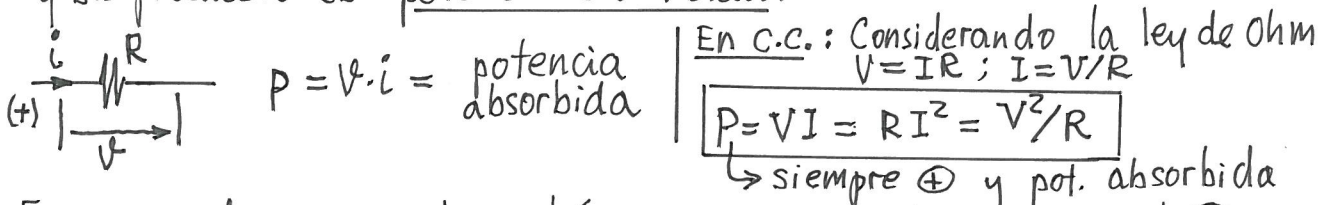 i R
(+)
v
p = v·i = potencia absorbida
En C.C.: Considerando la ley de Ohm
V=IR ; I=V/R
P= VI = RI² = V²/R
↳ siempre ⊕ y pot. absorbida